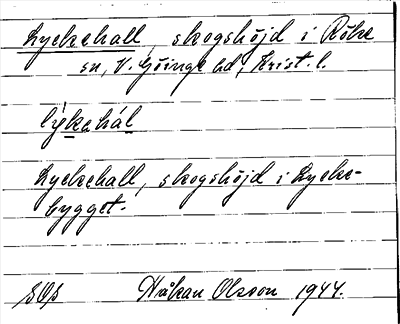 Lyckehall, skogshöjd i Röke
sn, V. Göinge hd, Krist. l.
lýkəhál
Lyckehall, skogshöjd i Lycke-
bygget.
SOs Håkan Olsson 1944.